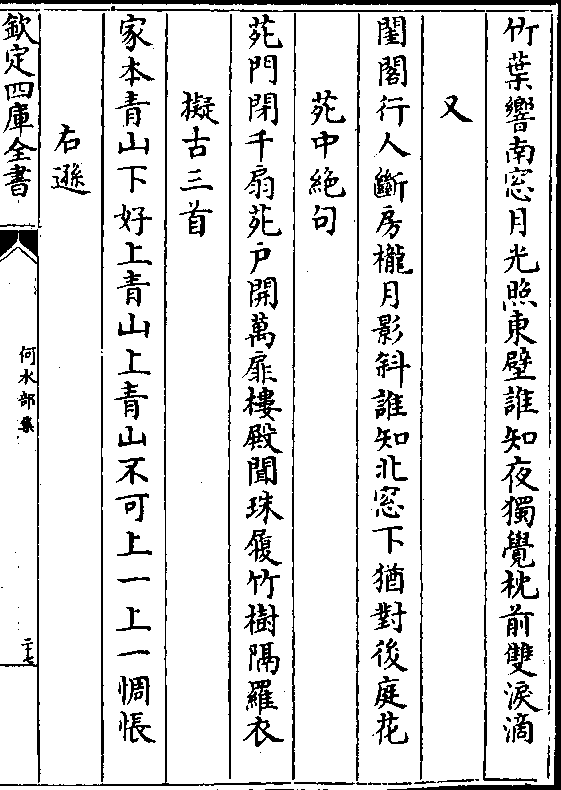 竹葉響南窓月光照東壁誰知夜獨覺枕前雙淚滴
又
閨閤行人斷房櫳月影斜誰知北窓下猶對後庭花
苑中絶句
苑門閉千扇苑户開萬扉樓殿聞珠履竹樹隔羅衣
擬古三首
家本青山下好上青山上青山不可上一上一惆悵
右遜
欽定四庫全書
何水部集
二十七